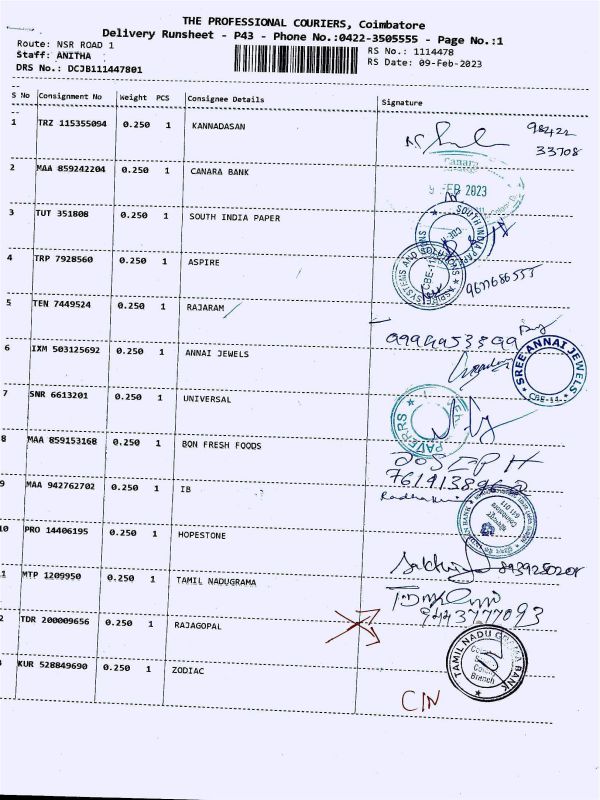 THE PROFESSIONAL COURIERS, Coimbatore
Delivery Runsheet - P43 - Phone No.:0422-3505555 - Page No.:1
Route: NSR ROAD 1
Staff: ANITHA
DRS No.: DCJB111447801
RS No.: 1114478
RS Date: 09-Feb-2023
S No Consignment No Weight PCS Consignee Details Signature
1 TRZ 115355094 0.250 1 KANNADASAN
98422
33708
2 MAA 859242204 0.250 1 CANARA BANK
Canara
9 FEB 2023
3 TUT 351808 0.250 1 SOUTH INDIA PAPER
SOUTH INDIA PAPER
4 TRP 7928560 0.250 1 ASPIRE
ASPIRE SYSTEMS AND SOLUTIONS
5 TEN 7449524 0.250 1 RAJARAM
6 IXM 503125692 0.250 1 ANNAI JEWELS
SREE ANNAI JEWELS
7 SNR 6613201 0.250 1 UNIVERSAL
PAVERRS
8 MAA 859153168 0.250 1 BON FRESH FOODS
9 MAA 942762702 0.250 1 IB
10 PRO 14406195 0.250 1 HOPESTONE
8939250208
1 MTP 1209950 0.250 1 TAMIL NADUGRAMA
9443777093
2 TDR 200009656 0.250 1 RAJAGOPAL
TAMIL NADU GRAMA BANK
Branch
KUR 528849690 0.250 1 ZODIAC
C/N